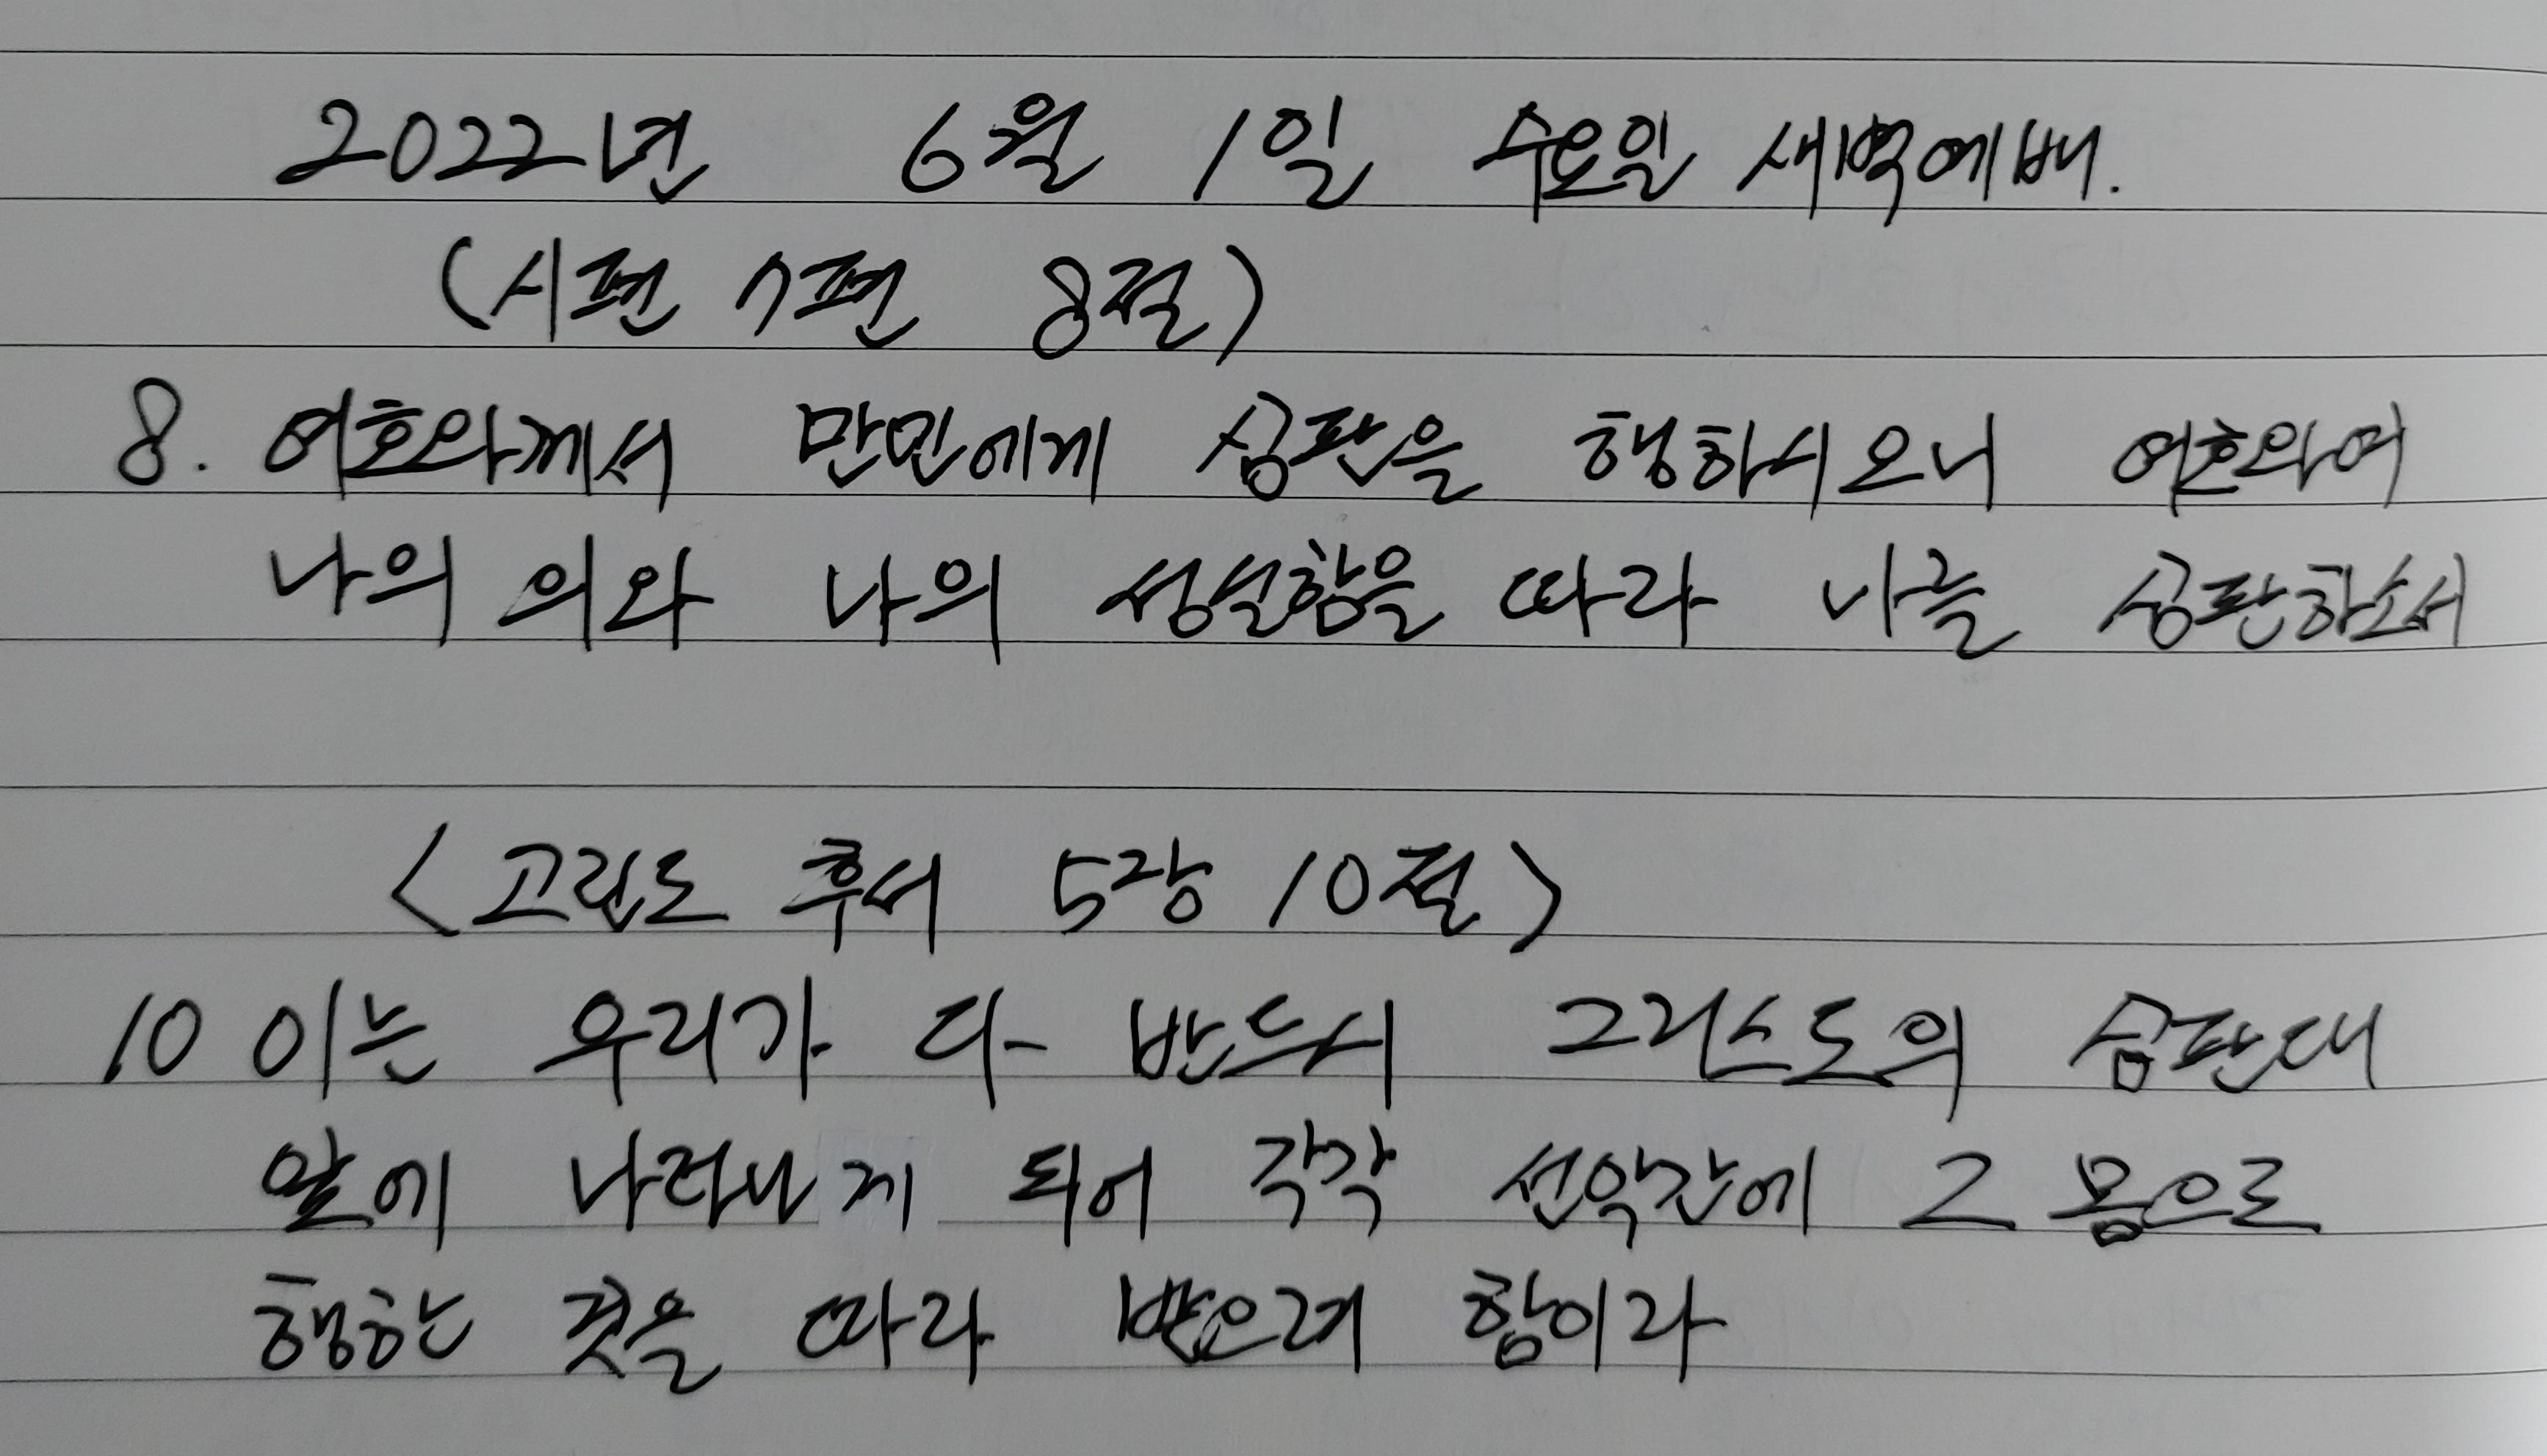 2022년 6월 1일 수요일 새벽예배.
(시편 7편 8절)
8. 여호와께서 만민에게 심판을 행하시오니 여호와여
나의 의와 나의 성실함을 따라 나를 심판하소서
<고린도 후서 5장 10절>
10 이는 우리가 다 반드시 그리스도의 심판대
앞에 나타나게 되어 각각 선악간에 그 몸으로
행한 것을 따라 받으려 함이라